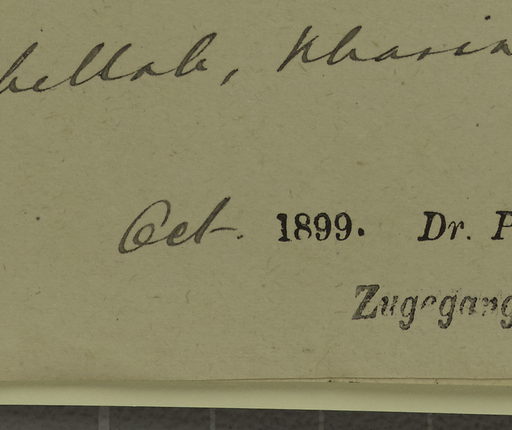 hellab, Kharia
Oct. 1899. Dr. P
Zugegang